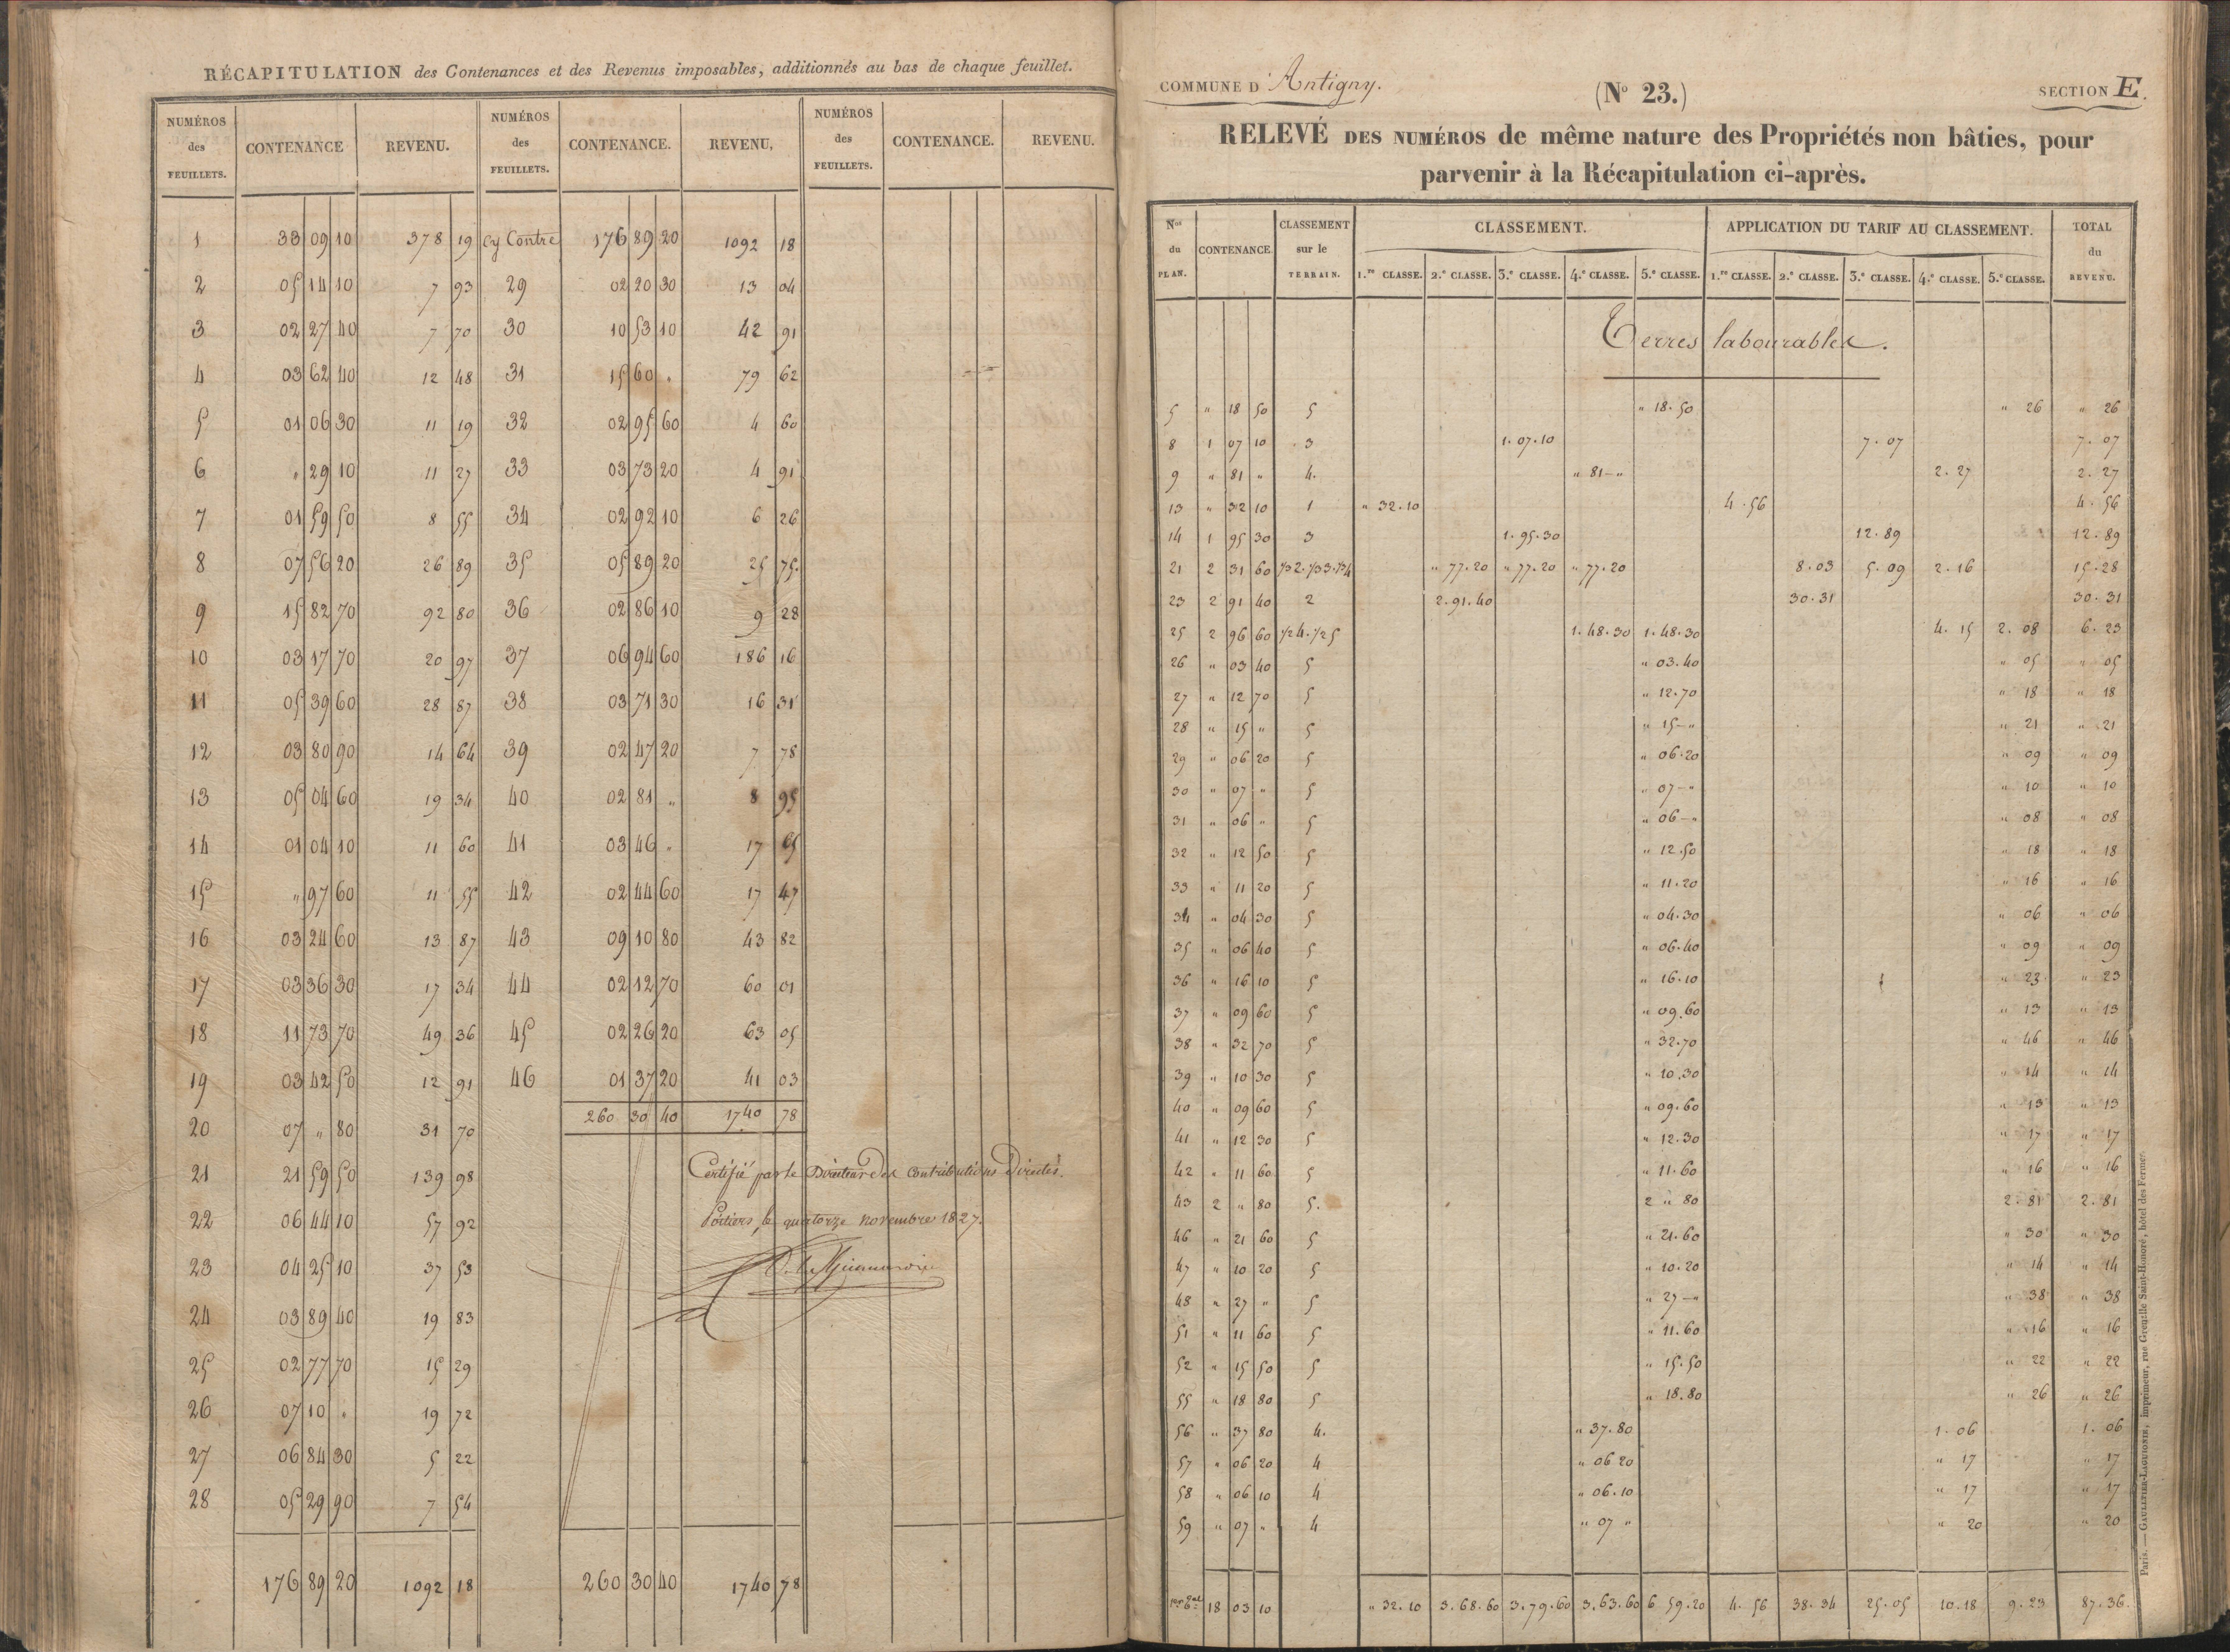 RÉCAPITULATION des Contenances et des Revenus imposables, additionnés au bas de chaque feuillet.
NUMÉROS des FEUILLETS. CONTENANCE REVENU. NUMÉROS des FEUILLETS. CONTENANCE. REVENU, NUMÉROS des FEUILLETS. CONTENANCE. REVENU.
1 33 09 10 378 19 Cy Contre 176 89 20 1092 18
2 05 14 10 7 93 29 02 20 30 13 04
3 02 27 40 7 70 30 10 53 10 42 91
4 03 62 40 12 48 31 15 60 " 79 62
5 01 06 30 11 19 32 02 95 60 4 60
6 " 29 10 11 27 33 03 73 20 4 91
7 01 59 50 8 55 34 02 92 10 6 26
8 07 56 20 26 89 35 05 89 20 25 75
9 15 82 70 92 80 36 02 86 10 9 28
10 03 17 70 20 97 37 06 94 60 186 16
11 05 39 60 28 87 38 03 71 30 16 31
12 03 80 90 14 64 39 02 47 20 7 78
13 05 04 60 19 34 40 02 81 " 8 95
14 01 04 10 11 60 41 03 46 " 17 65
15 " 97 60 11 55 42 02 44 60 17 47
16 03 24 60 13 87 43 09 10 80 43 82
17 03 36 30 17 34 44 02 12 70 60 01
18 11 73 70 49 36 45 02 26 20 63 05
19 03 42 50 12 91 46 01 37 20 41 03
260 30 40 1740 78
20 07 " 80 31 70
21 21 59 50 139 98 Certifié par le Directeur des Contributions Directes.
22 06 44 10 57 92 Poitiers, le quatorze novembre 1827.
23 04 25 10 37 53
24 03 89 40 19 83
25 02 77 70 15 29
26 07 10 " 19 72
27 06 84 30 5 22
28 05 29 90 7 54
176 89 20 1092 18 260 30 40 1740 78
COMMUNE D'Antigny. (N° 23.) SECTION E.
RELEVÉ DES NUMÉROS de même nature des Propriétés non bâties, pour
parvenir à la Récapitulation ci-après.
Nos du PLAN. CONTENANCE. CLASSEMENT sur le TERRAIN. CLASSEMENT. APPLICATION DU TARIF AU CLASSEMENT. TOTAL du REVENU.
1.re CLASSE. 2.e CLASSE. 3.e CLASSE. 4.e CLASSE. 5.e CLASSE. 1.re CLASSE. 2.e CLASSE. 3.e CLASSE. 4.e CLASSE. 5.e CLASSE.
Terres labourables.
5 " 18 50 5 " 18.50 " 26 " 26
8 1 07 10 3 1.07.10 7.07 7.07
9 " 81 " 4. " 81-" 2.27 2.27
13 " 32 10 1 " 32.10 4.56 4.56
14 1 95 30 3 1.95.30 12.89 12.89
21 2 31 60 1/3 2.1/3 3.1/3 4 " 77.20 " 77.20 " 77.20 8.03 5.09 2.16 15.28
23 2 91 40 2 2.91.40 30.31 30.31
25 2 96 60 1/2 4.1/2 5 1.48.30 1.48.30 4.15 2.08 6.23
26 " 03 40 5 " 03.40 " 05 " 05
27 " 12 70 5 " 12.70 " 18 " 18
28 " 15 " 5 " 15-" " 21 " 21
29 " 06 20 5 " 06.20 " 09 " 09
30 " 07 " 5 " 07-" " 10 " 10
31 " 06 " 5 " 06-" " 08 " 08
32 " 12 50 5 " 12.50 " 18 " 18
33 " 11 20 5 " 11.20 " 16 " 16
34 " 04 30 5 " 04.30 " 06 " 06
35 " 06 40 5 " 06.40 " 09 " 09
36 " 16 10 5 " 16.10 " 23 " 23
37 " 09 60 5 " 09.60 " 13 " 13
38 " 32 70 5 " 32.70 " 46 " 46
39 " 10 30 5 " 10.30 " 14 " 14
40 " 09 60 5 " 09.60 " 13 " 13
41 " 12 30 5 " 12.30 " 17 " 17
42 " 11 60 5 " 11.60 " 16 " 16
43 2 " 80 5. 2 " 80 2.81 2.81
46 " 21 60 5 " 21.60 " 30 " 30
47 " 10 20 5 " 10.20 " 14 " 14
48 " 27 " 5 " 27-" " 38 " 38
51 " 11 60 5 " 11.60 " 16 " 16
52 " 15 50 5 " 15.50 " 22 " 22
55 " 18 80 5 " 18.80 " 26 " 26
56 " 37 80 4. " 37.80 1.06 1.06
57 " 06 20 4 " 06 20 " 17 " 17
58 " 06 10 4 " 06.10 " 17 " 17
59 " 07 " 4 " 07 " " 20 " 20
18 03 10 " 32.10 3.68.60 3.79.60 3.63.60 6 59.20 4.56 38.34 25.05 10.18 9.23 87.36.
Paris. — GAULTIER-LAGUIONIE, imprimeur, rue Grenelle Saint-Honoré, hôtel des Fermes.